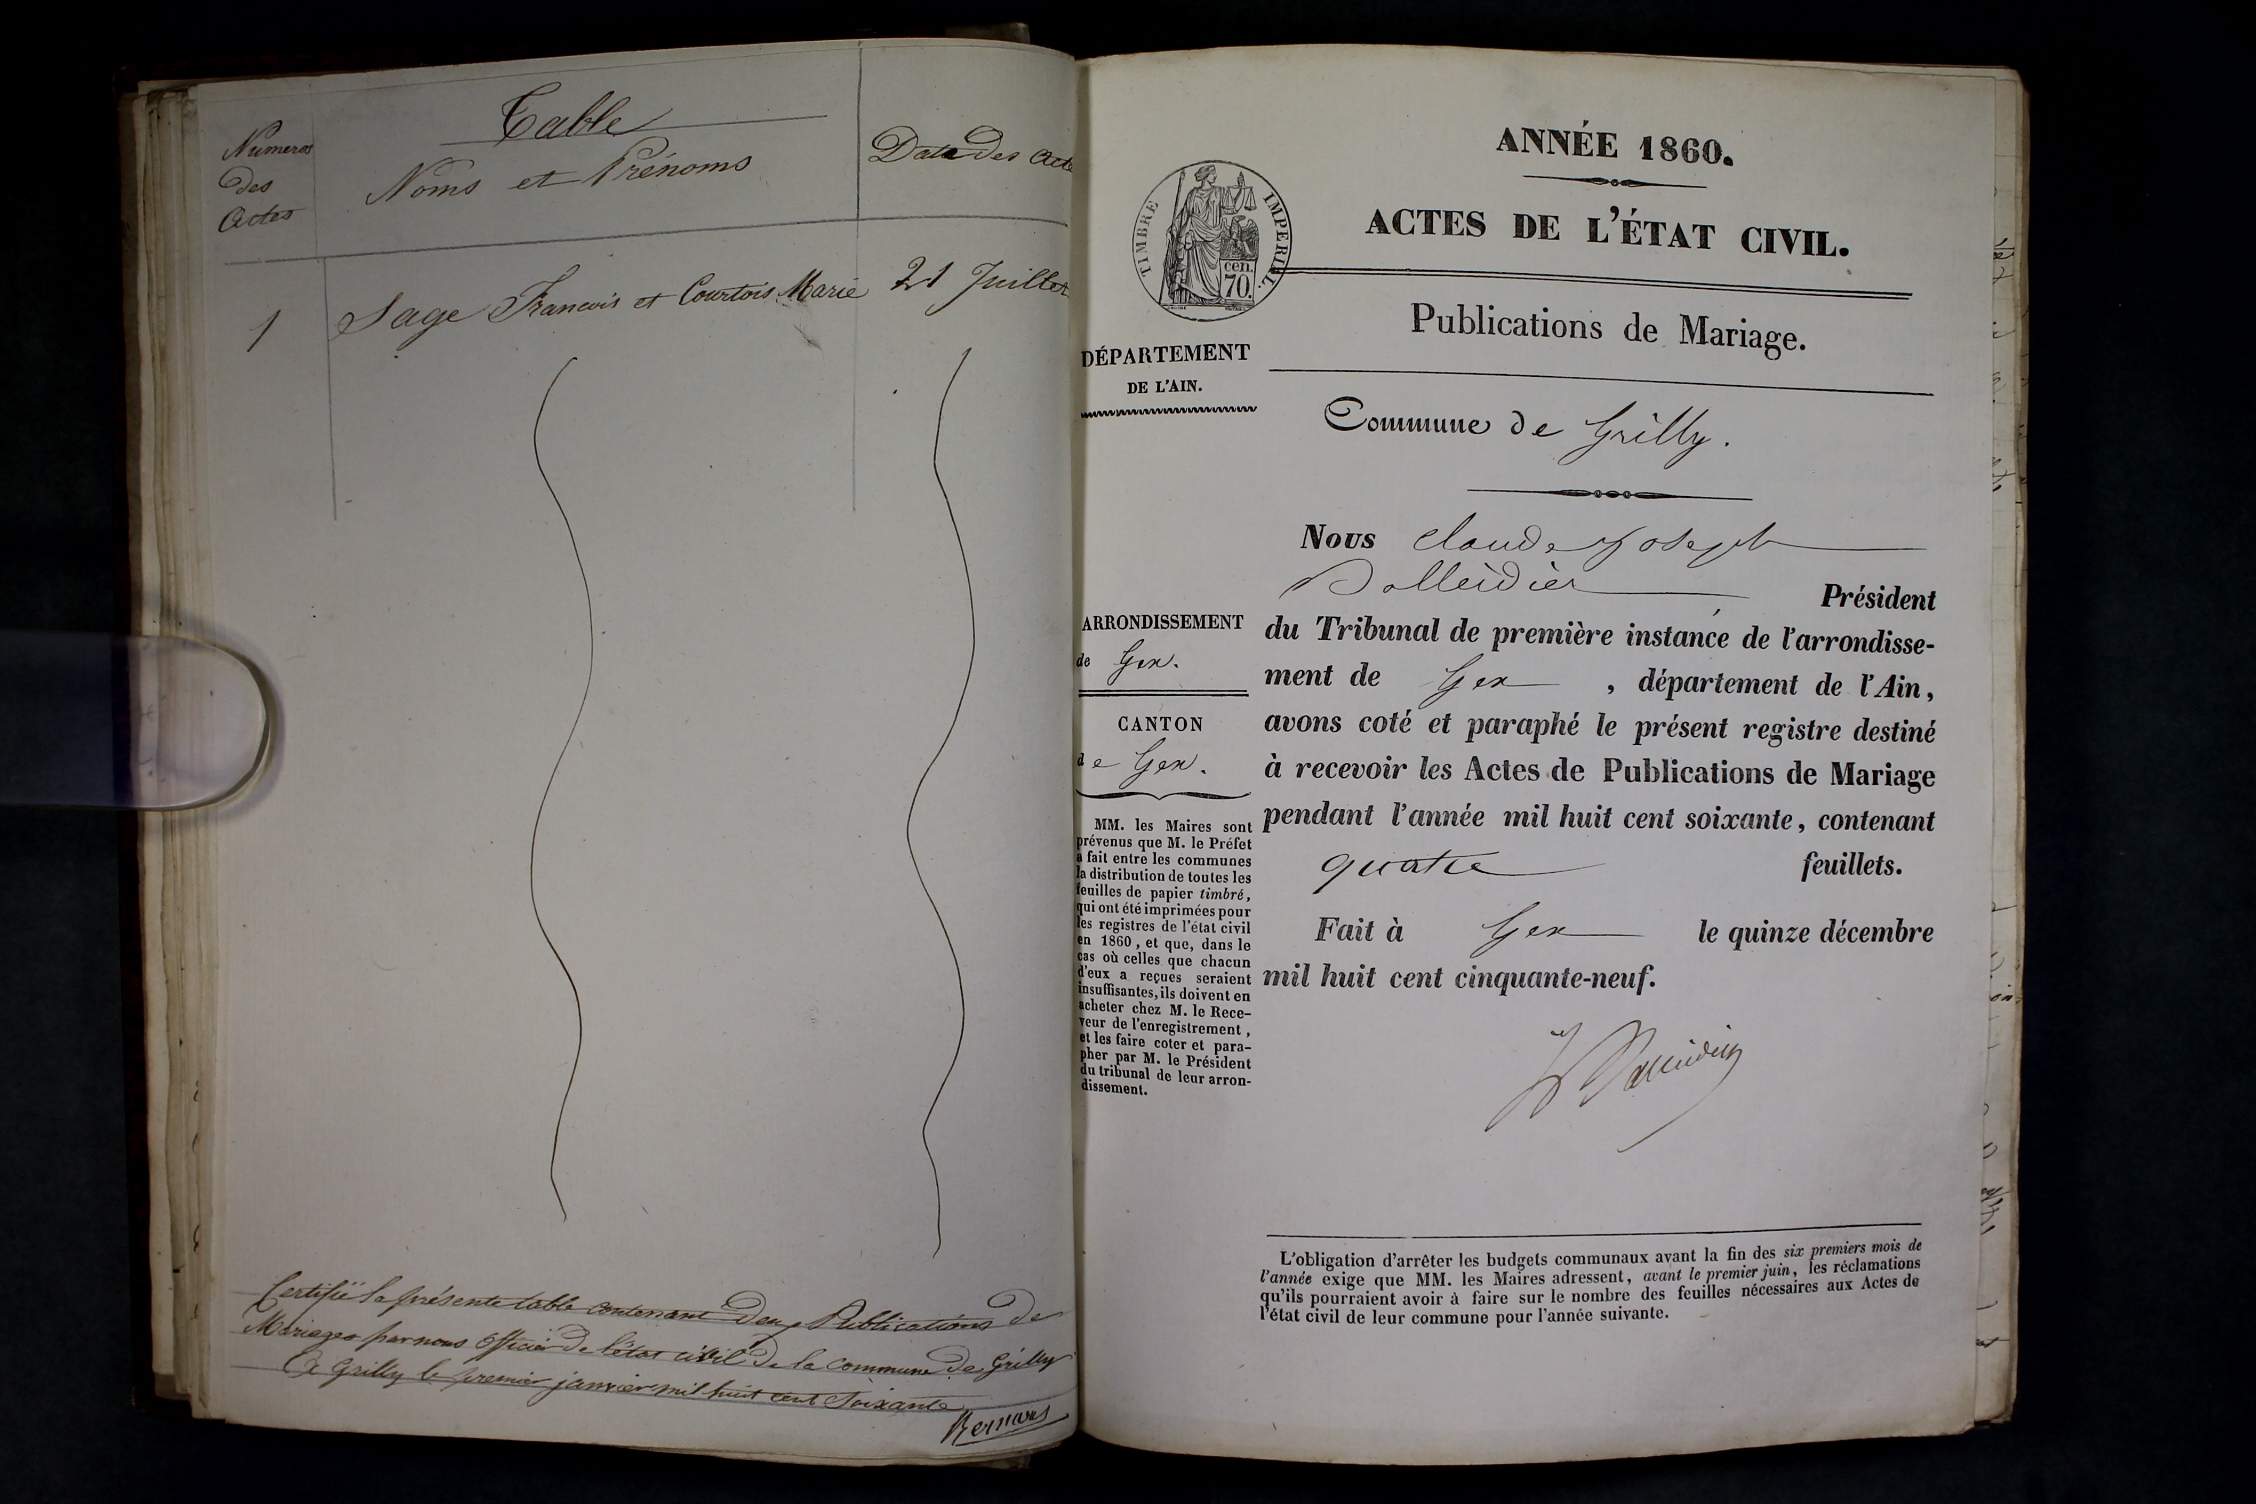 Table
Numeros
des
Actes
Noms et Prénoms
Date des Acte
1
Sage Francois et Courtois Marie
21 Juillet
Certifié la présente table contenant deux Publications de
Mariages par nous officier de l'état civil de la commune de Grilly
A Grilly le premier janvier mil huit cent soixante
Bernard
ANNÉE 1860.
ACTES DE L'ÉTAT CIVIL.
TIMBRE IMPERIAL.
cen.
70.
Publications de Mariage.
DÉPARTEMENT
DE L'AIN.
Commune de Grilly.
Nous Claude Joseph
Président
ARRONDISSEMENT
de Gex.
CANTON
de Gex.
MM. les Maires sont
prévenus que M. le Préfet
a fait entre les communes
la distribution de toutes les
feuilles de papier timbré,
qui ont été imprimées pour
les registres de l'état civil
en 1860, et que, dans le
cas où celles que chacun
d'eux a reçues seraient
insuffisantes, ils doivent en
acheter chez M. le Rece-
veur de l'enregistrement,
et les faire coter et para-
pher par M. le Président
du tribunal de leur arron-
dissement.
du Tribunal de première instance de l'arrondisse-
ment de Gex, département de l'Ain,
avons coté et paraphé le présent registre destiné
à recevoir les Actes de Publications de Mariage
pendant l'année mil huit cent soixante, contenant
quatre feuillets.
Fait à Gex le quinze décembre
mil huit cent cinquante-neuf.
L'obligation d'arrêter les budgets communaux avant la fin des six premiers mois de
l'année exige que MM. les Maires adressent, avant le premier juin, les réclamations
qu'ils pourraient avoir à faire sur le nombre des feuilles nécessaires aux Actes de
l'état civil de leur commune pour l'année suivante.